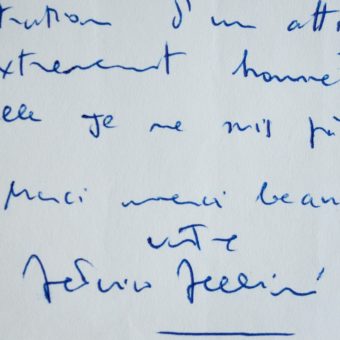 tration d'un att
xtrement honn
elle je me suis
Merci merci beau
votre
Federico Fellini